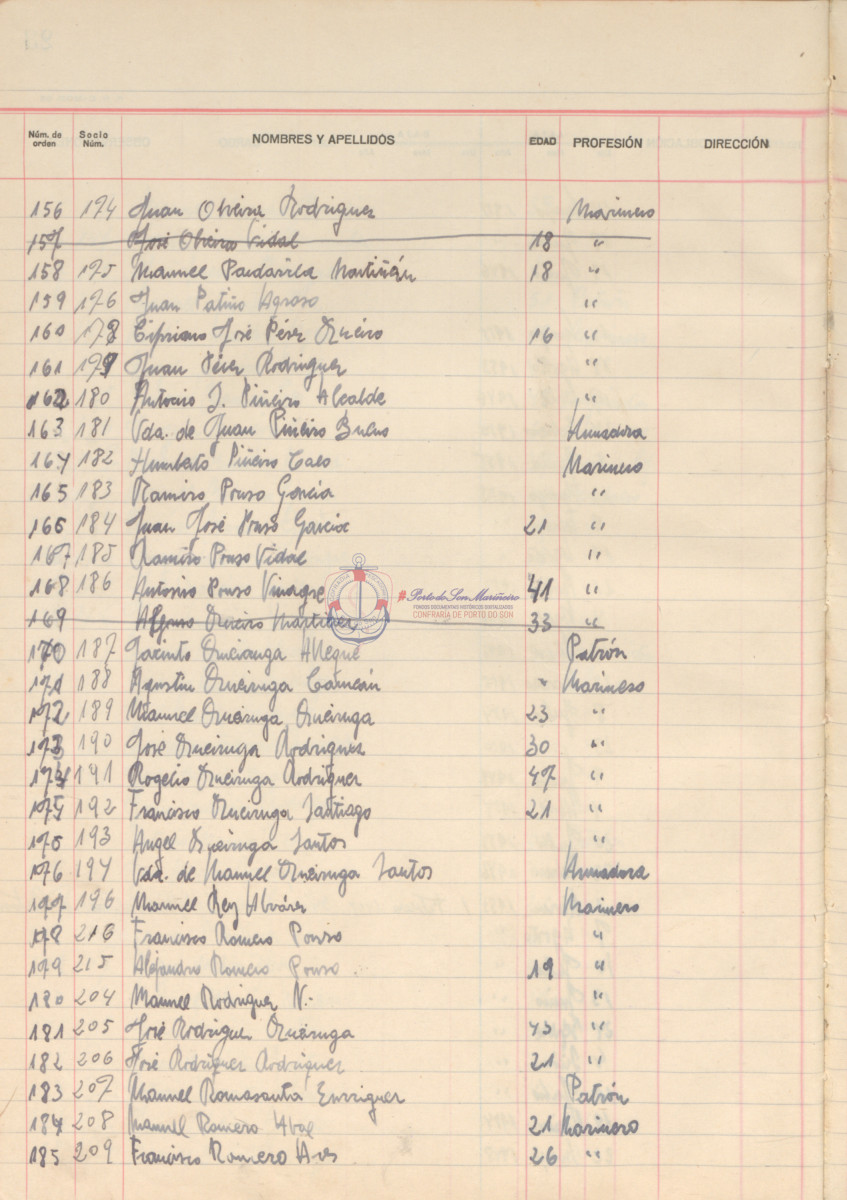 Núm. de orden Socio Núm. NOMBRES Y APELLIDOS EDAD PROFESIÓN DIRECCIÓN
156 174 Juan Oliveira Rodriguez Marinero
157 José Oliveira Vidal 18 "
158 175 Manuel Pardavila Martiñán 18 "
159 176 Juan Patiño Agraso "
160 178 Cipriano José Pérez Queiro 16 "
161 179 Juan Pérez Rodriguez "
162 180 Antonio J. Piñeiro Alcalde "
163 181 Vda. de Juan Piñeiro Armadora
164 182 Humberto Piñeiro Caeo Marinero
165 183 Ramiro Pouso García "
166 184 Juan José Pouso García 21 "
167 185 Ramiro Pouso Vidal "
168 186 Antonio Pouso Vinagre 41 "
169 Alfonso Queiro Martinez 33 "
170 187 Jacinto Queiruga Allegue Patrón
171 188 Agustin Queiruga Cameán " Marinero
172 189 Manuel Queiruga Queiruga 23 "
173 190 José Queiruga Rodriguez 30 "
174 191 Rogelio Queiruga Rodriguez 47 "
175 192 Francisco Queiruga Santiago 21 "
175 193 Angel Queiruga Santos "
176 194 Vda. de Manuel Queiruga Santos Armadora
177 196 Manuel Rey Alvárez Marinero
178 216 Francisco Romero Pouso "
179 215 Alejandro Romero Pouso 19 "
180 204 Manuel Rodriguez N.- "
181 205 José Rodriguez Queiruga 43 "
182 206 José Rodriguez Rodriguez 21 "
183 207 Manuel Romasanta Enrriguez Patrón
184 208 Manuel Romero 21 Marinero
185 209 Francisco Romero 26 "
#Porto do Son Mariñeiro
FONDOS DOCUMENTAIS HISTÓRICOS DIXITALIZADOS
CONFRARIA DE PORTO DO SON